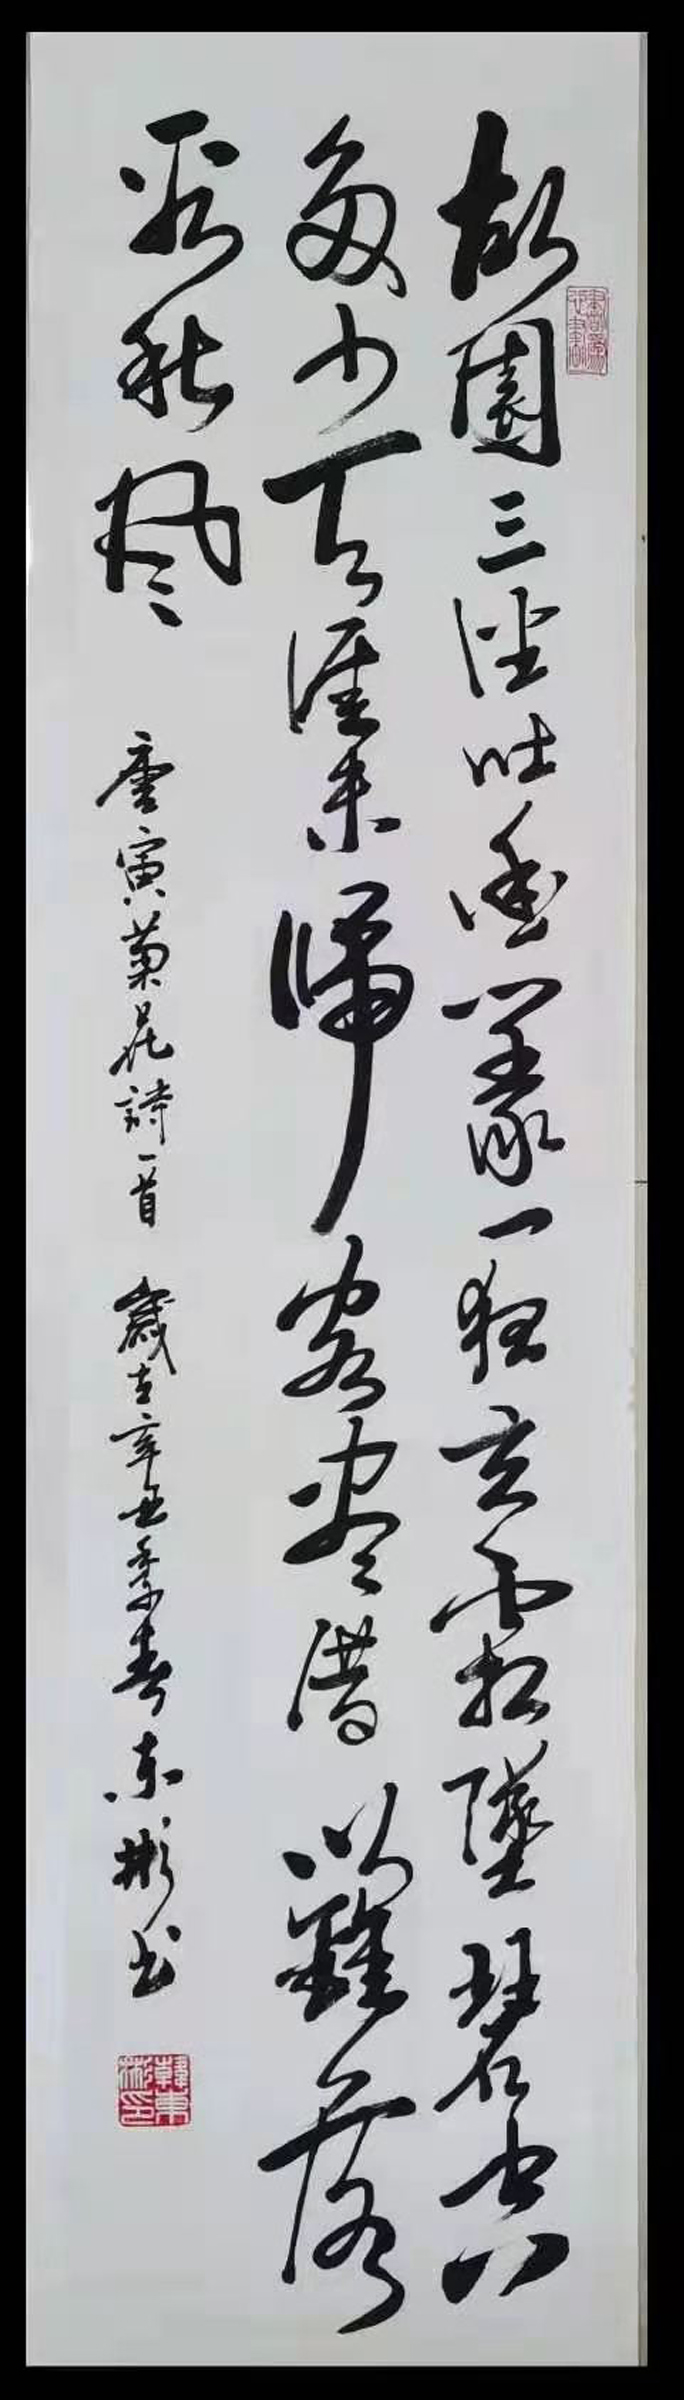 故園三徑吐幽叢一玄霜墜碧空
多少天涯未歸客盡借籬落
看秋風
唐寅菊花詩一首 歲在辛丑季春東彬書
韓東彬印